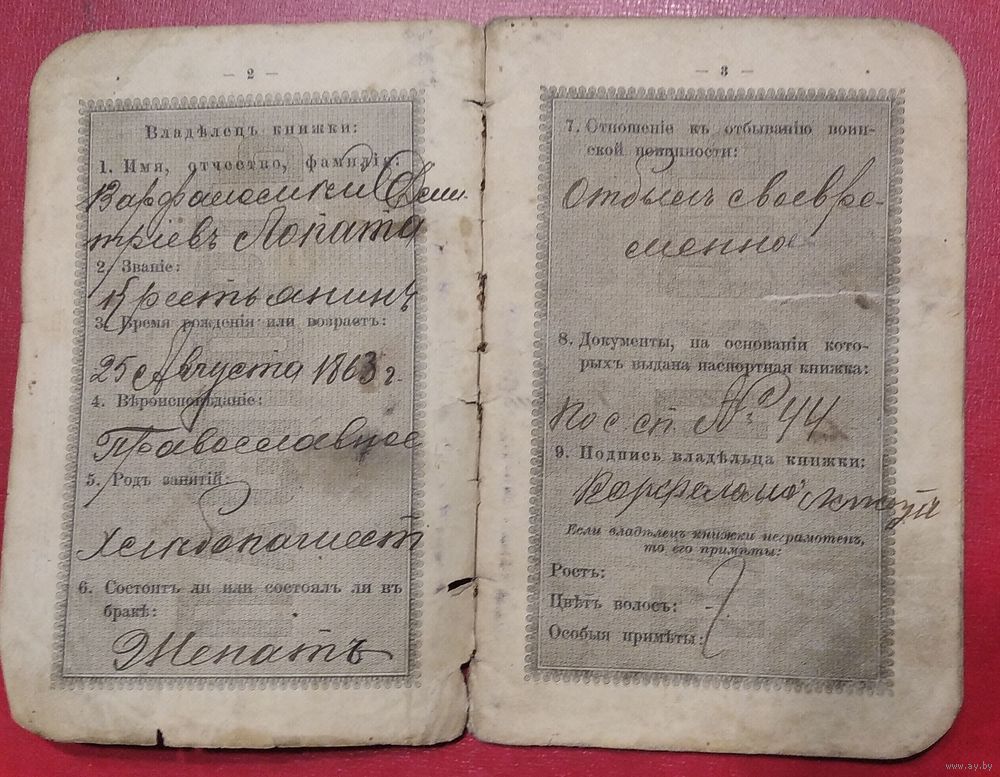 — 2 —
Владѣлецъ книжки:
1. Имя, отчество, фамилія:
Варфаломей Дми-
тріевъ Лопата
2. Званіе:
Крестьянинъ
3. Время рожденія или возрастъ:
25 Августа 1863 г.
4. Вѣроисповѣданіе:
Православное
5. Родъ занятій:
Хлебопашест
6. Состоитъ ли или состоялъ ли въ
бракѣ:
Женатъ
— 3 —
7. Отношеніе къ отбыванію воин-
ской повинности:
Отбылъ своевре-
менно
8. Документы, на основаніи кото-
рыхъ выдана паспортная книжка:
Пос. сп. № 44
9. Подпись владѣльца книжки:
Если владѣлецъ книжки неграмотенъ,
то его примѣты:
Ростъ:
Цвѣтъ волосъ:
Особыя примѣты:
www.ay.by